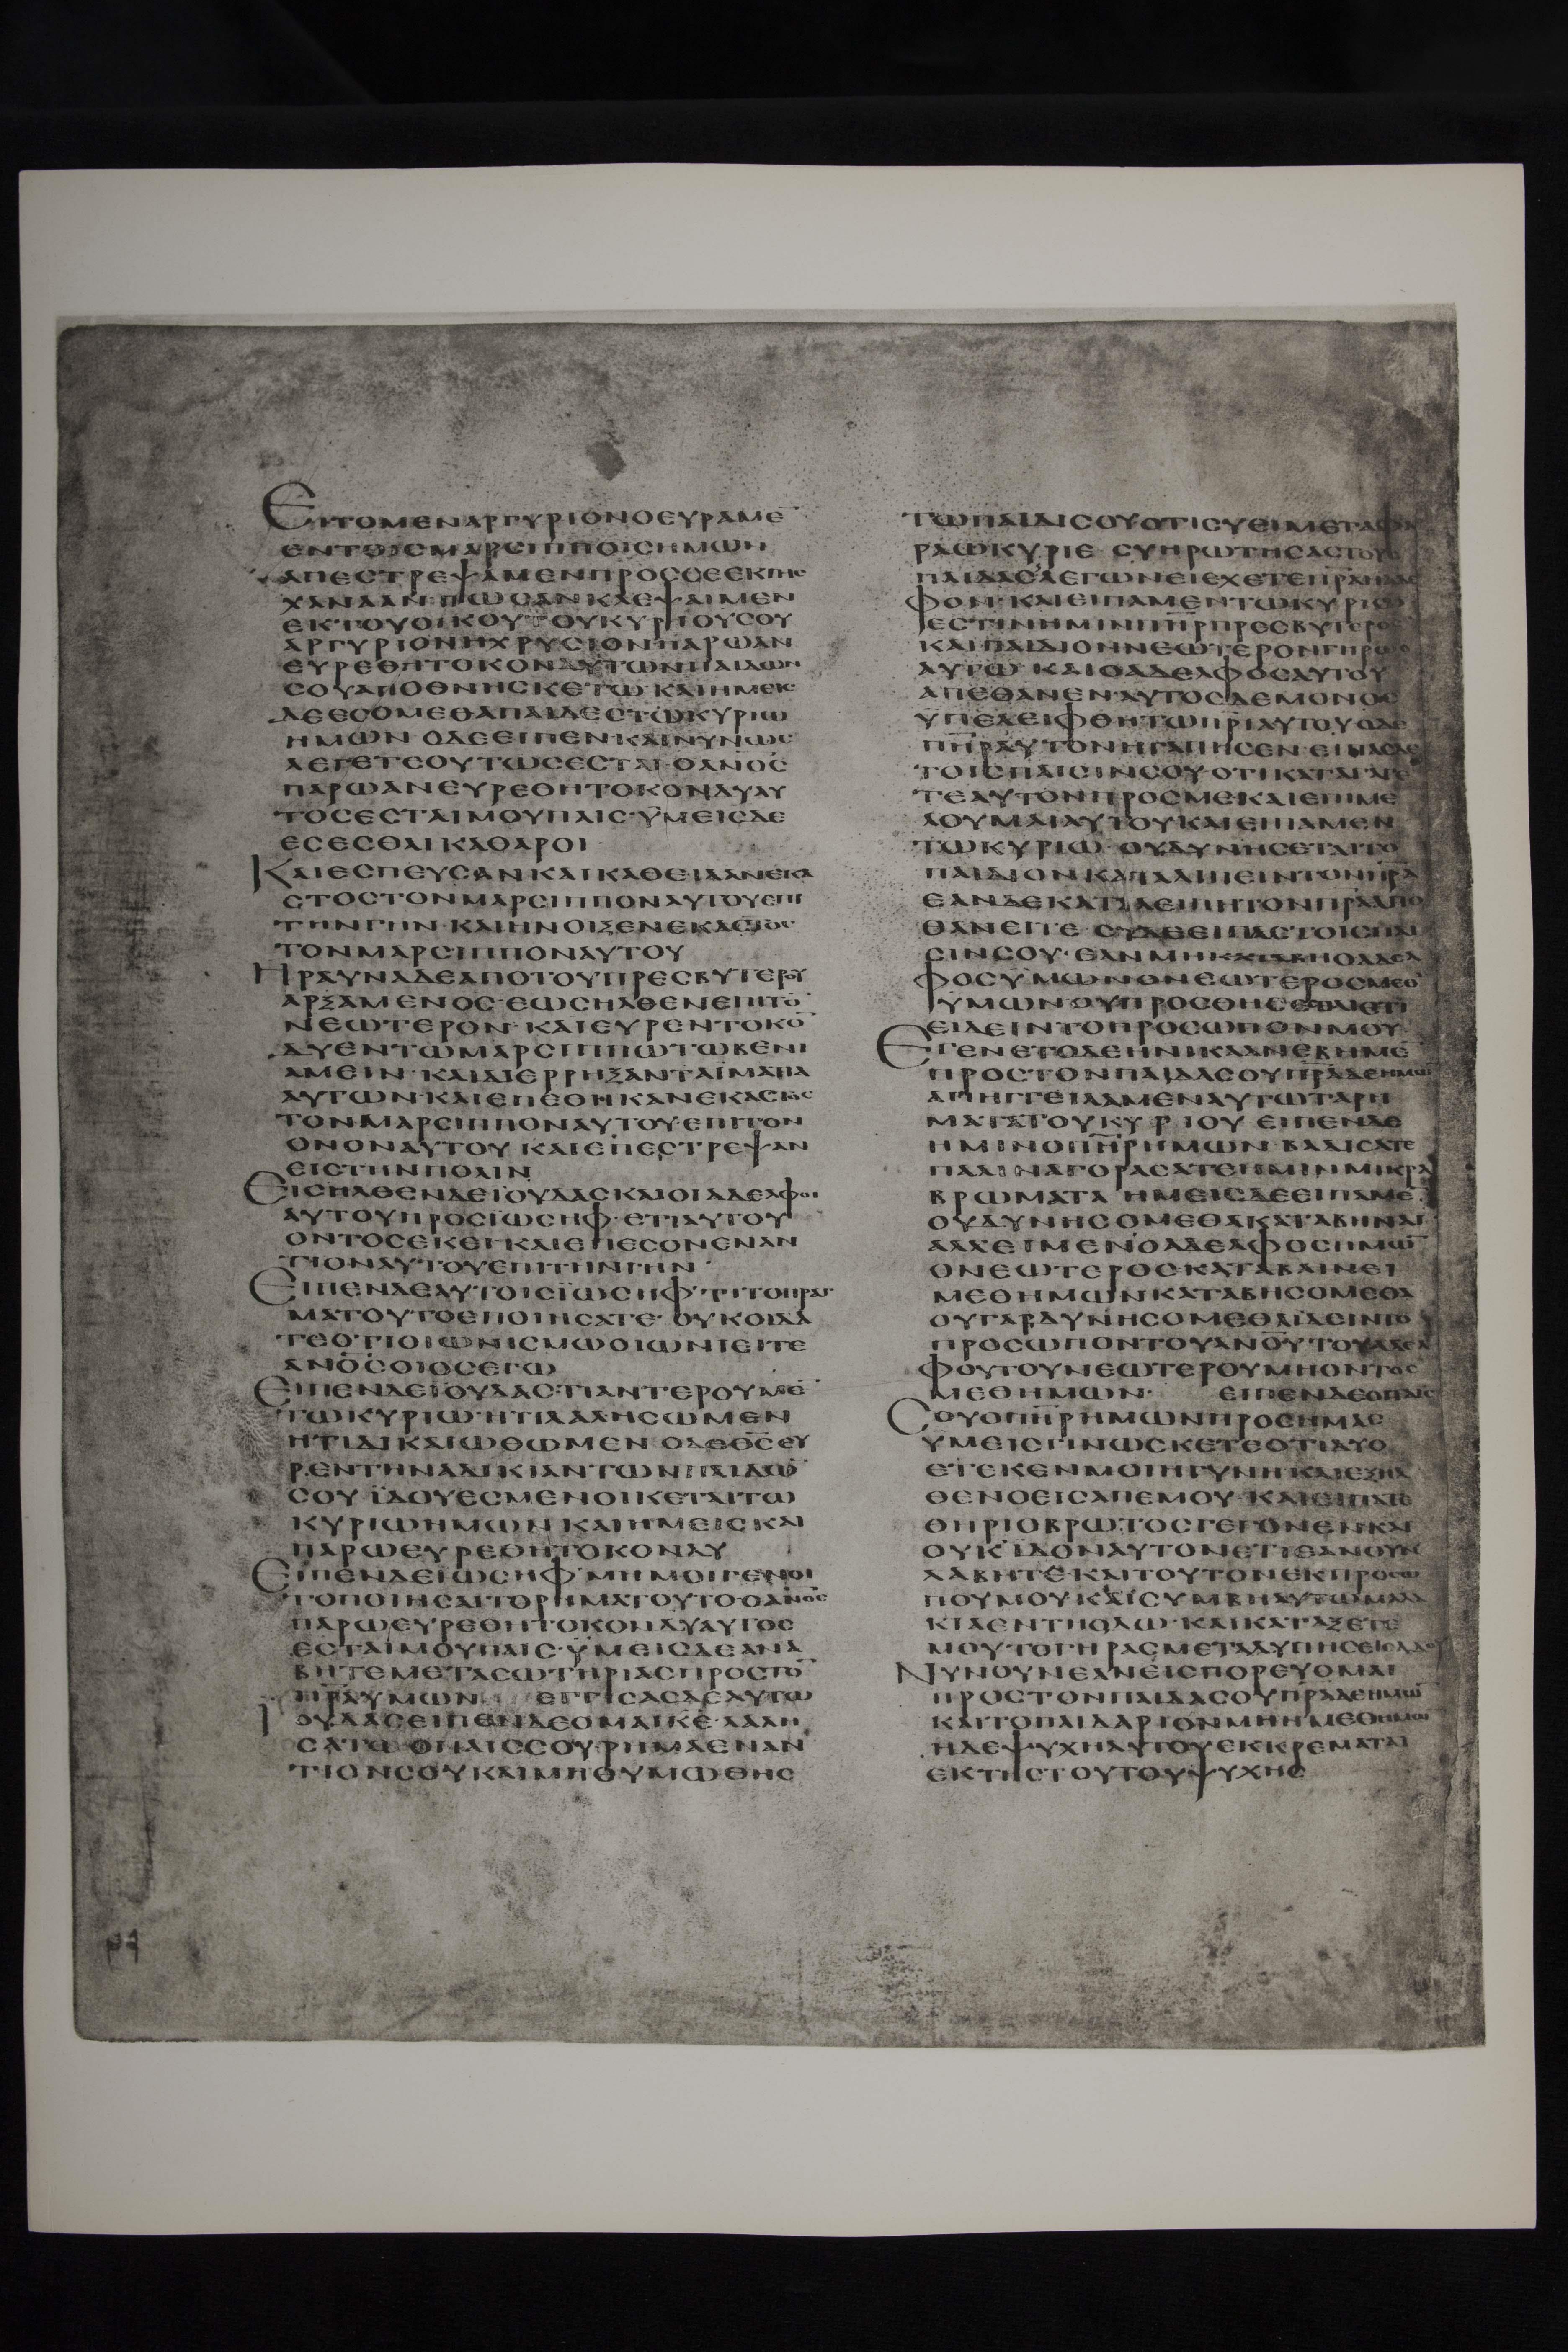 ΕΙΤΟΜΕΝΑΡΓΥΡΙΟΝΟΕΥΡΑΜΕ̅
ΕΝΤΟΙСΜΑΡСΙΠΠΟΙСΗΜΩΝ
ΑΠΕСΤΡΕΨΑΜΕΝΠΡΟССΕΕΚΓΗС
ΧΑΝΑΑΝ·ΠΩСΑΝΚΛΕΨΑΙΜΕΝ
ΕΚΤΟΥΟΙΚΟΥΤΟΥΚΥΡΙΟΥСΟΥ
ΑΡΓΥΡΙΟΝΗΧΡΥСΙΟΝ·ΠΑΡΩΑΝ
ΕΥΡΕΘΗΤΟΚΟΝΔΥΤΩΝΠΑΙΔΩΝ
СΟΥΑΠΟΘΝΗСΚΕΤΩ·ΚΑΙΗΜΕΙС
ΔΕΕСΟΜΕΘΑΠΑΙΔΕСΤΩΚΥΡΙΩ
ΗΜΩΝ ΟΔΕΕΙΠΕΝ·ΚΑΙΝΥΝΩС
ΛΕΓΕΤΕΟΥΤΩСΕСΤΑΙ·ΟΑΝΟ̅С
ΠΑΡΩΑΝΕΥΡΕΘΗΤΟΚΟΝΔΥΑΥ
ΤΟСΕСΤΑΙΜΟΥΠΑΙС·ΫΜΕΙСΔΕ
ΕСΕСΘΑΙΚΑΘΑΡΟΙ·
ΚΑΙΕСΠΕΥСΑΝΚΑΙΚΑΘΕΙΛΑΝΕΚΑ
СΤΟСΤΟΝΜΑΡСΙΠΠΟΝΑΥΤΟΥΕΠΙ
ΤΗΝΓΗΝ·ΚΑΙΗΝΟΙΞΕΝΕΚΑСΤΟС
ΤΟΝΜΑΡСΙΠΠΟΝΑΥΤΟΥ
ΗΡΑΥΝΑΔΕΑΠΟΤΟΥΠΡΕСΒΥΤΕΡΟΥ
ΑΡΞΑΜΕΝΟС·ΕΩСΗΛΘΕΝΕΠΙΤΟ̅
ΝΕΩΤΕΡΟΝ·ΚΑΙΕΥΡΕΝΤΟΚΟ̅
ΔΥΕΝΤΩΜΑΡСΙΠΠΩΤΩΒΕΝΙ
ΑΜΕΙΝ·ΚΑΙΔΙΕΡΡΗΞΑΝΤΑΪΜΑΤΙΑ
ΑΥΤΩΝ·ΚΑΙΕΠΕΘΗΚΑΝΕΚΑСΤΟС
ΤΟΝΜΑΡСΙΠΠΟΝΑΥΤΟΥΕΠΙΤΟΝ
ΟΝΟΝΑΥΤΟΥ ΚΑΙΕΠΕСΤΡΕΨΑΝ
ΕΙСΤΗΝΠΟΛΙΝ
ΕΙСΗΛΘΕΝΔΕΪΟΥΔΑСΚΑΙΟΙΑΔΕΛΦΟΙ
ΑΥΤΟΥΠΡΟСΪΩСΗΦ·ΕΤΙΑΥΤΟΥ
ΟΝΤΟСΕΚΕΙ·ΚΑΙΕΠΕСΟΝΕΝΑΝ
ΤΙΟΝΑΥΤΟΥΕΠΙΤΗΝΓΗΝ·
ΕΙΠΕΝΔΕΑΥΤΟΙСΪΩСΗΦ·ΤΙΤΟΠΡΑΓ
ΜΑΤΟΥΤΟΕΠΟΙΗСΑΤΕ·ΟΥΚΟΙΔΑ
ΤΕΟΤΙΟΙΩΝΙСΜΩΟΙΩΝΙΕΙΤΕ
ΑΝΟ̅СΟΙΟСΕΓΩ
ΕΙΠΕΝΔΕΪΟΥΔΑС·ΤΙΑΝΤΕΡΟΥΜΕ̅
ΤΩΚΥΡΙΩ·ΗΤΙΛΑΛΗСΩΜΕΝ
ΗΤΙΔΙΚΑΙΩΘΩΜΕΝ ΟΔΕΘ̅СΕΥ
ΡΕΝΤΗΝΑΔΙΚΙΑΝΤΩΝΠΑΙΔΩ̅
СΟΥ·ΪΔΟΥΕСΜΕΝΟΙΚΕΤΑΙΤΩ
ΚΥΡΙΩΗΜΩΝ ΚΑΙΗΜΕΙСΚΑΙ
ΠΑΡΩΕΥΡΕΘΗΤΟΚΟΝΔΥ
ΕΙΠΕΝΔΕΪΩСΗΦ·ΜΗΜΟΙΓΕΝΟΙ
ΤΟΠΟΙΗСΑΙΤΟΡΗΜΑΤΟΥΤΟ·ΟΑΝΟ̅С
ΠΑΡΩΕΥΡΕΘΗΤΟΚΟΝΔΥΑΥΤΟС
ΕСΤΑΙΜΟΥΠΑΙС·ΫΜΕΙСΔΕΑΝΑ
ΒΗΤΕΜΕΤΑСΩΤΗΡΙΑСΠΡΟСΤΟ̅
ΠΡ̅ΑΥΜΩΝ ΕΓΓΙСΑСΔΕΑΥΤΩ
ΙΟΥΔΑСΕΙΠΕΝΔΕΟΜΑΙΚ̅Ε·ΛΑΛΗ
СΑΤΩ ΟΠΑΙССΟΥΡΗΜΑΕΝΑΝ
ΤΙΟΝСΟΥΚΑΙΜΗΘΥΜΩΘΗС
ΤΩΠΑΙΔΙСΟΥΟΤΙСΥΕΙΜΕΤΑΦΑ
ΡΑΩΚΥΡΙΕ·СΥΗΡΩΤΗСΑСΤΟΥС
ΠΑΙΔΑСΛΕΓΩΝΕΙΕΧΕΤΕΠΡ̅Α
ΦΟΝ·ΚΑΙΕΙΠΑΜΕΝΤΩΚΥΡΙΩ
ΕСΤΙΝΗΜΙΝΠΗ̅ΡΠΡΕСΒΥΤΕΡΟС
ΚΑΙΠΑΙΔΙΟΝΝΕΩΤΕΡΟΝΓΗΡΩС
ΑΥΤΩ·ΚΑΙΟΑΔΕΛΦΟСΑΥΤΟΥ
ΑΠΕΘΑΝΕΝ·ΑΥΤΟСΔΕΜΟΝΟС
ΫΠΕΛΕΙΦΘΗΤΩΠΡ̅ΙΑΥΤΟΥ·ΟΔΕ
ΠΗ̅ΡΑΥΤΟΝΗΓΑΠΗСΕΝ·ΕΙΠΑСΔΕ
ΤΟΙСΠΑΙСΙΝСΟΥ·ΟΤΙΚΑΤΑΓΑΓΕ
ΤΕΑΥΤΟΝΠΡΟСΜΕ·ΚΑΙΕΠΙΜΕ
ΛΟΥΜΑΙΑΥΤΟΥ·ΚΑΙΕΙΠΑΜΕΝ
ΤΩΚΥΡΙΩ·ΟΥΔΥΝΗСΕΤΑΙΤΟ
ΠΑΙΔΙΟΝΚΑΤΑΛΙΠΕΙΝΤΟΝΠΡ̅Α
ΕΑΝΔΕΚΑΤΑΛΕΙΠΗΤΟΝΠΡ̅ΑΑΠΟ
ΘΑΝΕΙΤΕ·СΥΔΕΕΙΠΑСΤΟΙСΠΑΙ
СΙΝСΟΥ·ΕΑΝΜΗΚΑΤΑΒΗΟΑΔΕΛ
ΦΟСΫΜΩΝΟΝΕΩΤΕΡΟСΜΕΘ
ΫΜΩΝΟΥΠΡΟСΘΗСΕСΘΑΙΕΤΙ
ΕΙΔΕΙΝΤΟΠΡΟСΩΠΟΝΜΟΥ·
ΕΓΕΝΕΤΟΔΕΗΝΙΚΑΑΝΕΒΗΜΕ̅
ΠΡΟСΤΟΝΠΑΙΔΑСΟΥΠΡ̅ΑΔΕΗΜΩ̅
ΑΠΗΓΓΕΙΛΑΜΕΝΑΥΤΩΤΑΡΗ
ΜΑΤΑΤΟΥΚΥΡΙΟΥ ΕΙΠΕΝΔΕ
ΗΜΙΝΟΠΗ̅ΡΗΜΩΝ ΒΑΔΙСΑΤΕ
ΠΑΛΙΝΑΓΟΡΑСΑΤΕΗΜΙΝΜΙΚΡΑ
ΒΡΩΜΑΤΑ ΗΜΕΙСΔΕΕΙΠΑΜΕ̅
ΟΥΔΥΝΗСΟΜΕΘΑΚΑΤΑΒΗΝΑΙ
ΑΛΛΕΙΜΕΝΟΑΔΕΛΦΟСΗΜΩ̅
ΟΝΕΩΤΕΡΟСΚΑΤΑΒΑΙΝΕΙ
ΜΕΘΗΜΩΝΚΑΤΑΒΗСΟΜΕΘΑ
ΟΥΓΑΡΔΥΝΗСΟΜΕΘΑΪΔΕΙΝΤΟ
ΠΡΟСΩΠΟΝΤΟΥΑΝΟ̅ΥΤΟΥΑΔΕΛ
ΦΟΥΤΟΥΝΕΩΤΕΡΟΥΜΗΟΝΤΟС
ΜΕΘΗΜΩΝ· ΕΙΠΕΝΔΕΟΠΑΙС
СΟΥΟΠΗ̅ΡΗΜΩΝΠΡΟСΗΜΑС
ΫΜΕΙСΓΙΝΩСΚΕΤΕΟΤΙΔΥΟ
ΕΤΕΚΕΝΜΟΙΗΓΥΝΗ·ΚΑΙΕΞΗΛ
ΘΕΝΟΕΙСΑΠΕΜΟΥ·ΚΑΙΕΙΠΑΤΕ
ΘΗΡΙΟΒΡΩΤΟСΓΕΓΟΝΕΝΚΑΙ
ΟΥΚΪΔΟΝΑΥΤΟΝΕΤΙ·ΕΑΝΟΥΝ
ΛΑΒΗΤΕ·ΚΑΙΤΟΥΤΟΝΕΚΠΡΟСΩ
ΠΟΥΜΟΥ·ΚΑΙСΥΜΒΗΑΥΤΩΜΑΛΑ
ΚΙΑΕΝΤΗΟΔΩ·ΚΑΙΚΑΤΑΞΕΤΕ
ΜΟΥΤΟΓΗΡΑСΜΕΤΑΛΥΠΗСΕΙС
ΝΥΝΟΥΝΕΑΝΕΙСΠΟΡΕΥΟΜΑΙ
ΠΡΟСΤΟΝΠΑΙΔΑСΟΥΠΡ̅ΑΔΕΗΜΩ̅
ΚΑΙΤΟΠΑΙΔΑΡΙΟΝΜΗΗΜΕΘΗΜΩ̅
ΗΔΕΨΥΧΗΑΥΤΟΥΕΚΚΡΕΜΑΤΑΙ
ΕΚΤΗСΤΟΥΤΟΥΨΥΧΗС